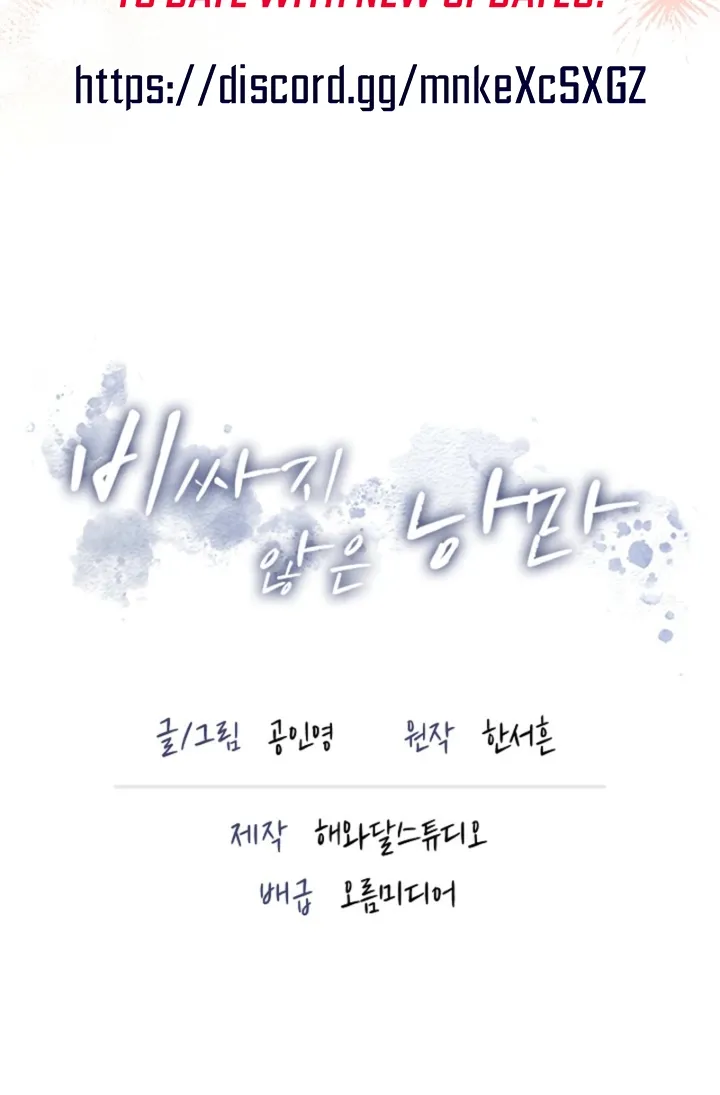 TO DATE WITH NEW UPDATES!
https://discord.gg/mnkeXcSXGZ
비싸지
않은 낭만
글/그림 공인영 원작 한서흔
제작 해와달스튜디오
배급 오름미디어